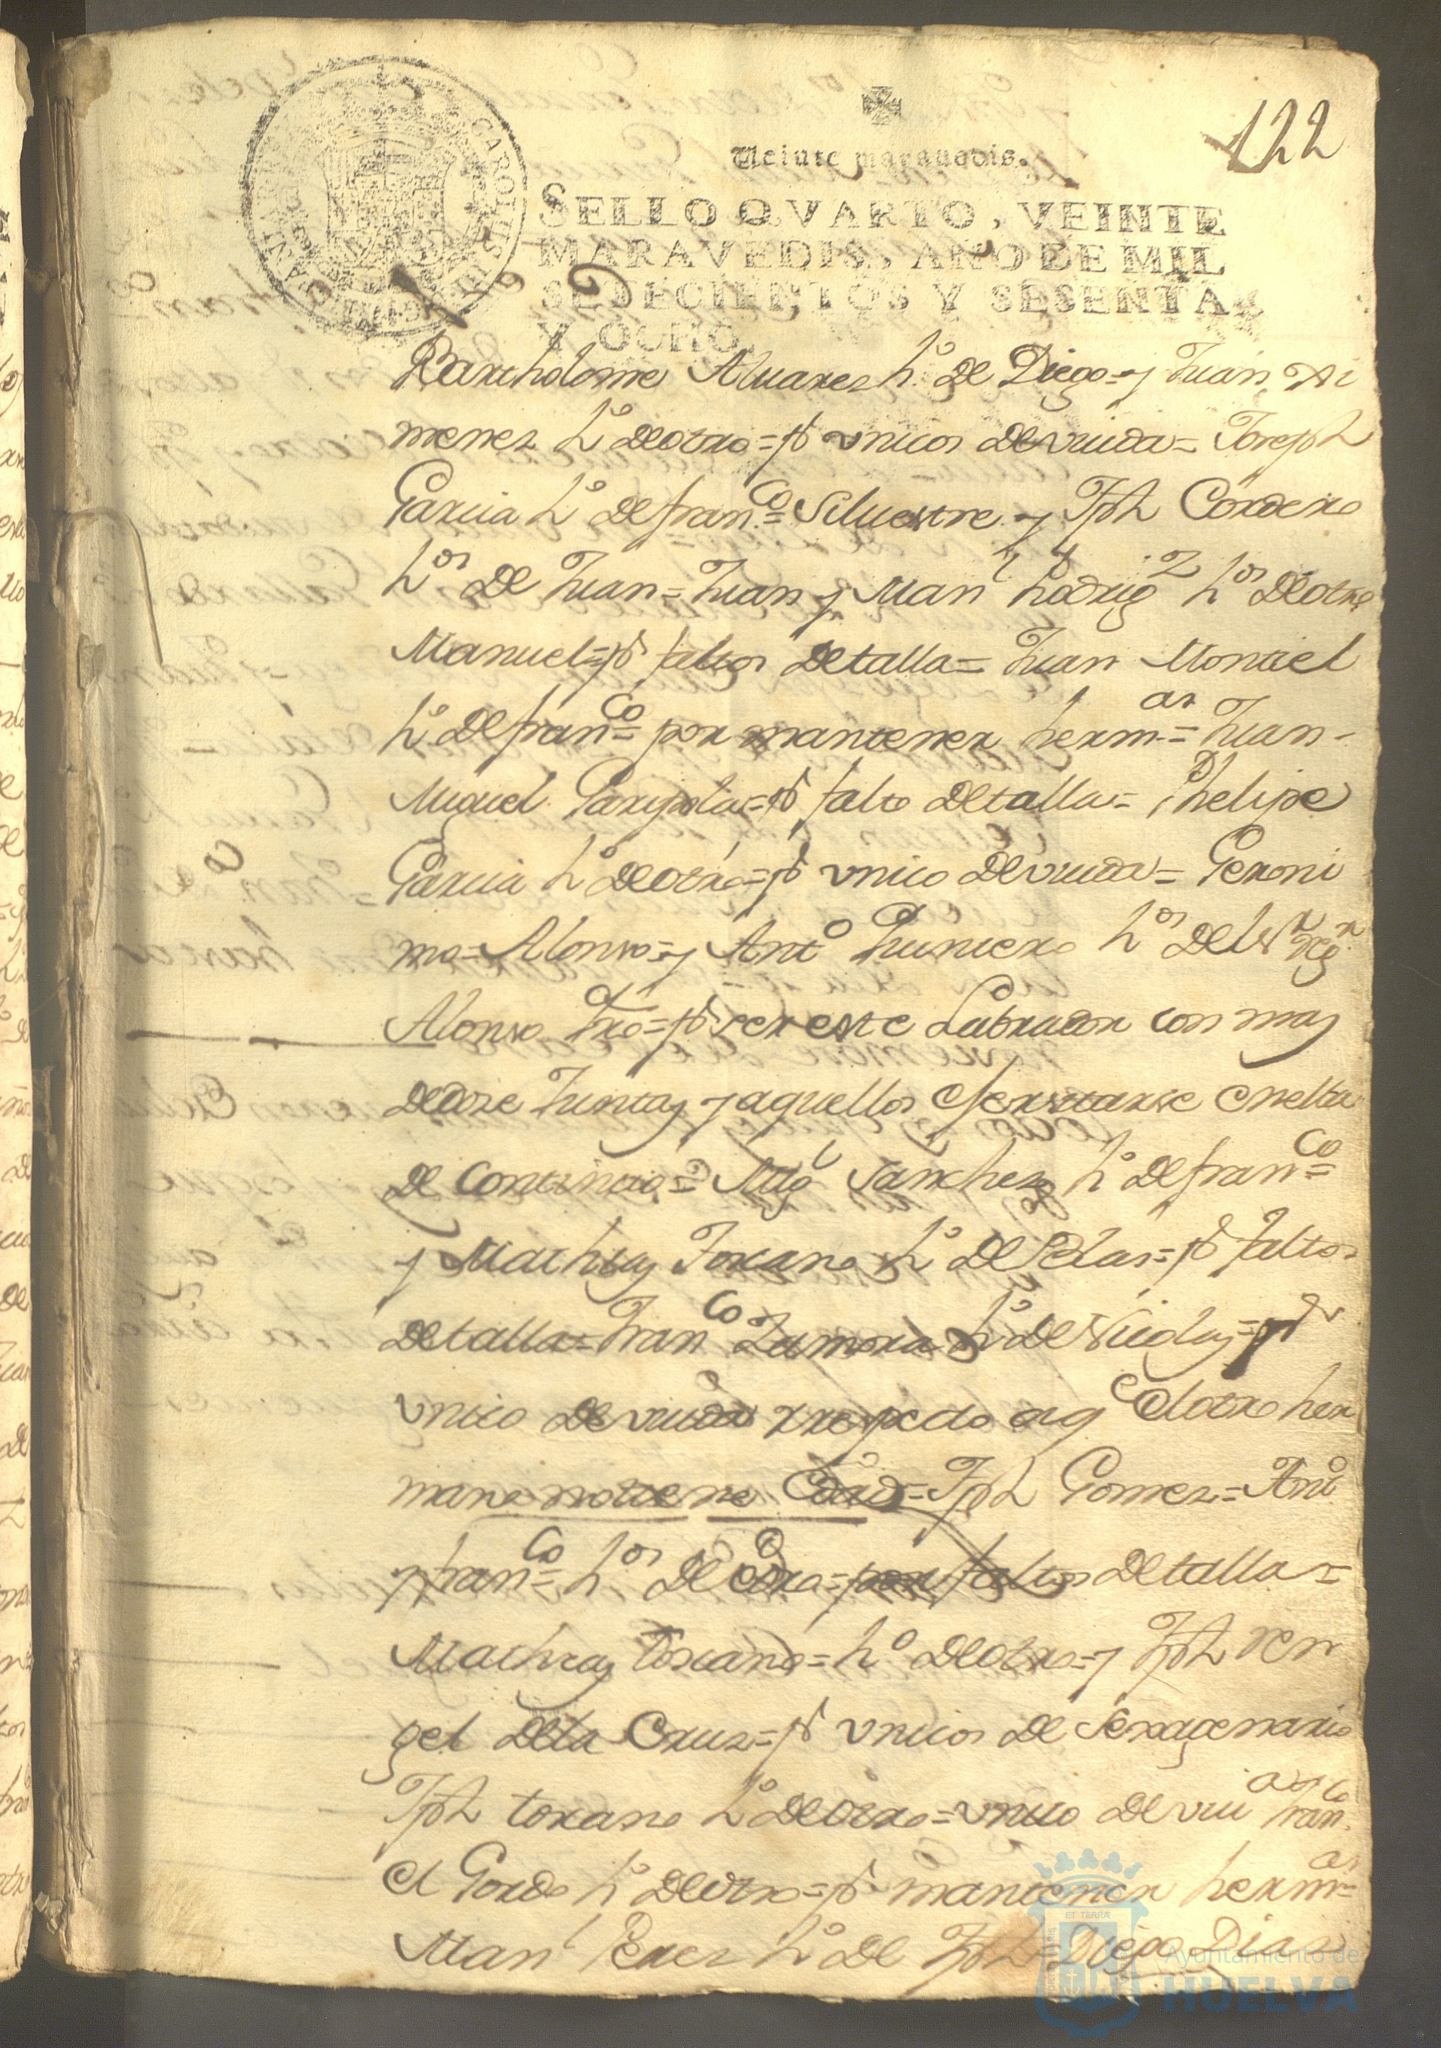 122
Veinte maravedis.
SELLO QVARTO, VEINTE
MARAVEDIS, AÑO DE MIL
SETECIENTOS Y SESENTA
Y OCHO.
Bartholome Aluarez h.º de Diego = y Juan Xi
menez h.º de otro = pr vnicos de viuda = Joseph
Garcia h.º de franco = Siluestre y Jph Cordero
hos de Juan = Juan y Manl Rodrigz hos de otro
Manuel = pr faltos de talla = Juan Montiel
h.º de franco = por mantener hermas = Juan
Miguel = pr falto de talla = Phelipe
Garcia h.º de otro = pr vnico de viuda = Geroni
mo = Alonso = y Anto Quintero hos del
Alonso = pr ser este Labrador con mas
de doze Juntas y aquellos exersitarse en elta
de Continuo = Migl Sanchez h.º de franco =
y Mathias Toscano h.º de Blas = pr faltos
de talla = Franco Zamora h.º de Nicolas = pr
vnico de viuda respecto a qe el otro her
mano no tiene edad = Jph Gomez = Anto
y franco = hos de otro = por faltos de talla =
Mathias toscano = h.º de otro = y Jph ren
gel de la Cruz = pr vnicos de Sexagenario
Jph toscano h.º de otro = vnico de viua Franco
el Gordo h.º de otro = pr mantener hermas =
Manl Perez h.º de Jph = Diego Diaz
Ayuntamiento de
HUELVA